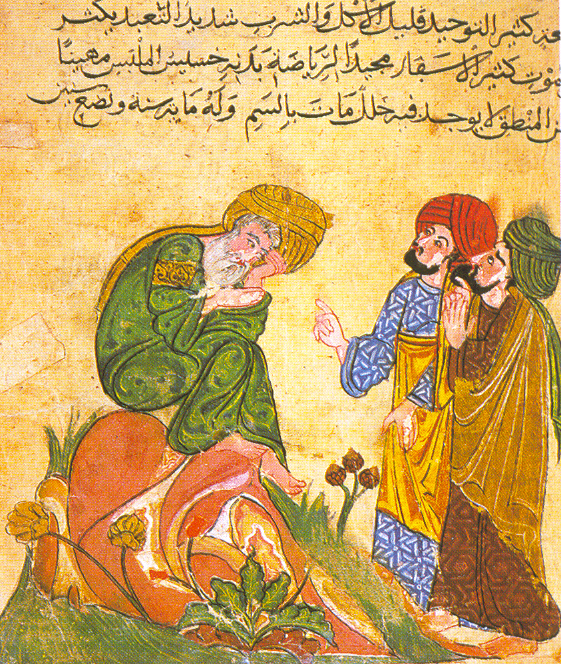 كثير التوحيد قليل الاكل والشرب شديد التعبد يكثر
موت كثير الاسفار مجيدا لرياضة بدنه خسيس الملبس مهيبا
المنطق لا يوجد فيه خلل مات بالسم وله مائة سنة وبضع سنين